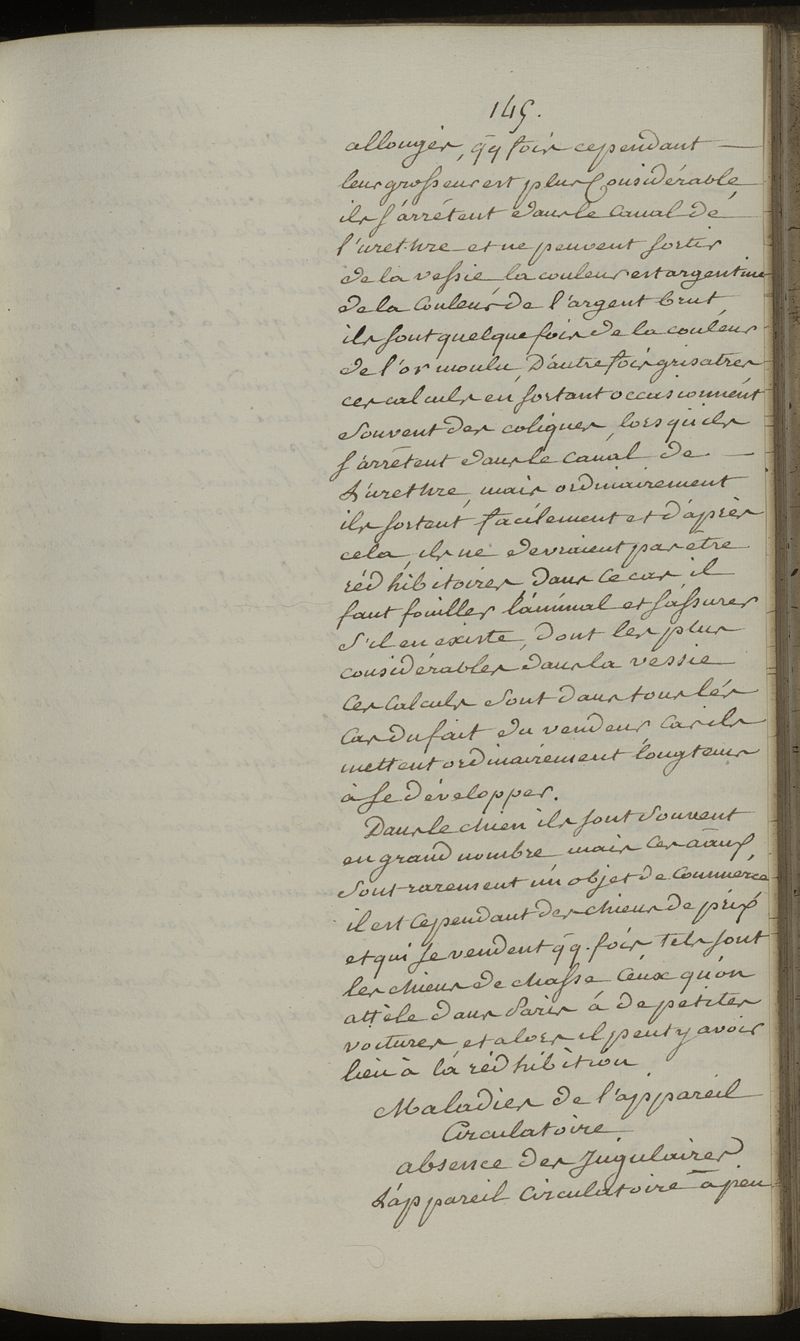 145.
allongér, q̄q fois cependant —
leur grosseur est plus Considérable
ils s'arrêtent dans le Canal dé
l'urethre et ne peuvent sortir
de la vessie la couleur est argentine
de la Couleur de l'argent brut
ils sont quelque fois de la couleur
de l'or moulu, D'autre fois grisatres
ces calculs en sortant occasionnent
souvent des coliques, lorsqu'ils
s'arrêtent dans le canal de —
L'urethre, mais ordinairement
ils sortent facilement et d'après
cela, ils ne devraient pas être
rédhibitoires dans ce cas, il
faut fouiller l'animal et s'assurer
s'il en existe, dont les plus
considérables dans la vessie
Ces Calculs sont dans tous lés
Cas du fait du vendeur Car ils
mettent ordinairement longtems
à se développer.
Dans le chien ils sont souvent
en grand nombre mais Ces āaux
sont rarement un objet de Commerce
il est Cependant des chiens de prix
et qui se vendent q̄q. fois tels sont
les chiens de chasse Ceux qu'on
attèle dans Paris à de petites
voitures, et alors il peut y avoir
lieu à la rédhibition
Maladies de l'appareil
Circulatoire
absence des Jugulaires
L'appareil Circulatoire a peu